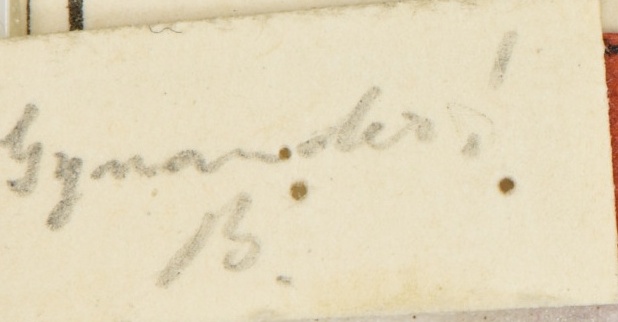 Gynander!
B.